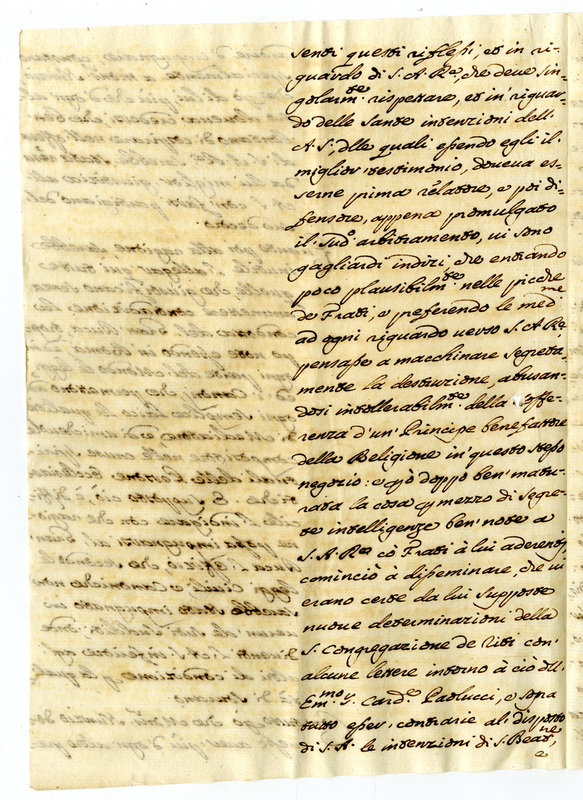 senti questi riflessi, et in ri=
guardo di S. A. Rle, che deve sin=
golarmte rispettare, et in riguar=
do delle Sante intenzioni dell'
A. S., delle quali essendo egli il
miglior testimonio, doveva es=
serne prima relatore, e poi di=
fensore, appena promulgato
il sudo arbitramento, vi sono
gagliardi indizi, che entrando
poco plausibilmte nelle picche
de Frati, e preferendo le medme
ad ogni riguardo verso S. A. Rle
pensasse a macchinare segreta=
mente la destruzione, abusan=
dosi intollerabilmte della soffe=
renza d'un Principe benefattore
della Religione in questo stesso
negozio: e però doppo ben matu=
rata la cosa p mezzo di segre=
te intelligenze ben note a
S. A. Rle cò Frati à lui aderenti,
cominciò à disseminare, che vi
erano certe da lui supposte
nuove determinazioni della
S. Congregazione de Riti con
alcune lettere intorno à ciò dell'
Emmo Sr Carde Paolucci, e sopra
tutto esser contrarie al disposto
di S. A. le intenzioni di S. Beatne,
e